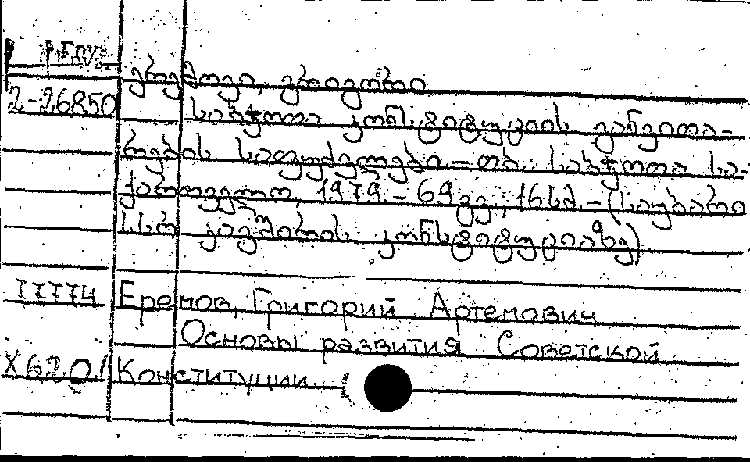 ერემოვი, გრიგორი
2-26850 საბჭოთა კონსტიტუციის განვითა-
რების საფუძვლები.-თბ.: საბჭოთა სა-
ქართველო, 1979.- 69 გვ.; 16სმ.- (საუბარი
სსრ კავშირის კონსტიტუციაზე)
77774 Еремов, Григорий Артемович
Основы развития Советской
X620.1 Конституции (